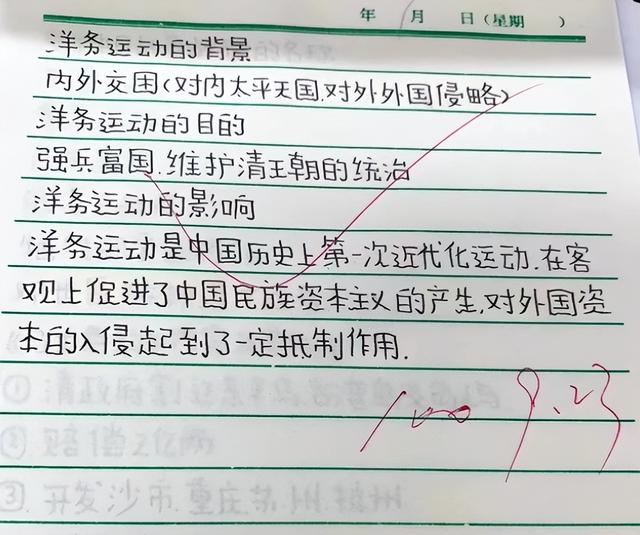 年 月 日(星期 )
洋务运动的背景
内外交困(对内太平天国.对外外国侵略)
洋务运动的目的
强兵富国.维护清王朝的统治
洋务运动的影响
洋务运动是中国历史上第一次近代化运动.在客
观上促进了中国民族资本主义的产生.对外国资
本的入侵起到了一定抵制作用.
100 9.23
①清政府
②赔偿2亿两
③.开发沙市.重庆.苏州.杭州